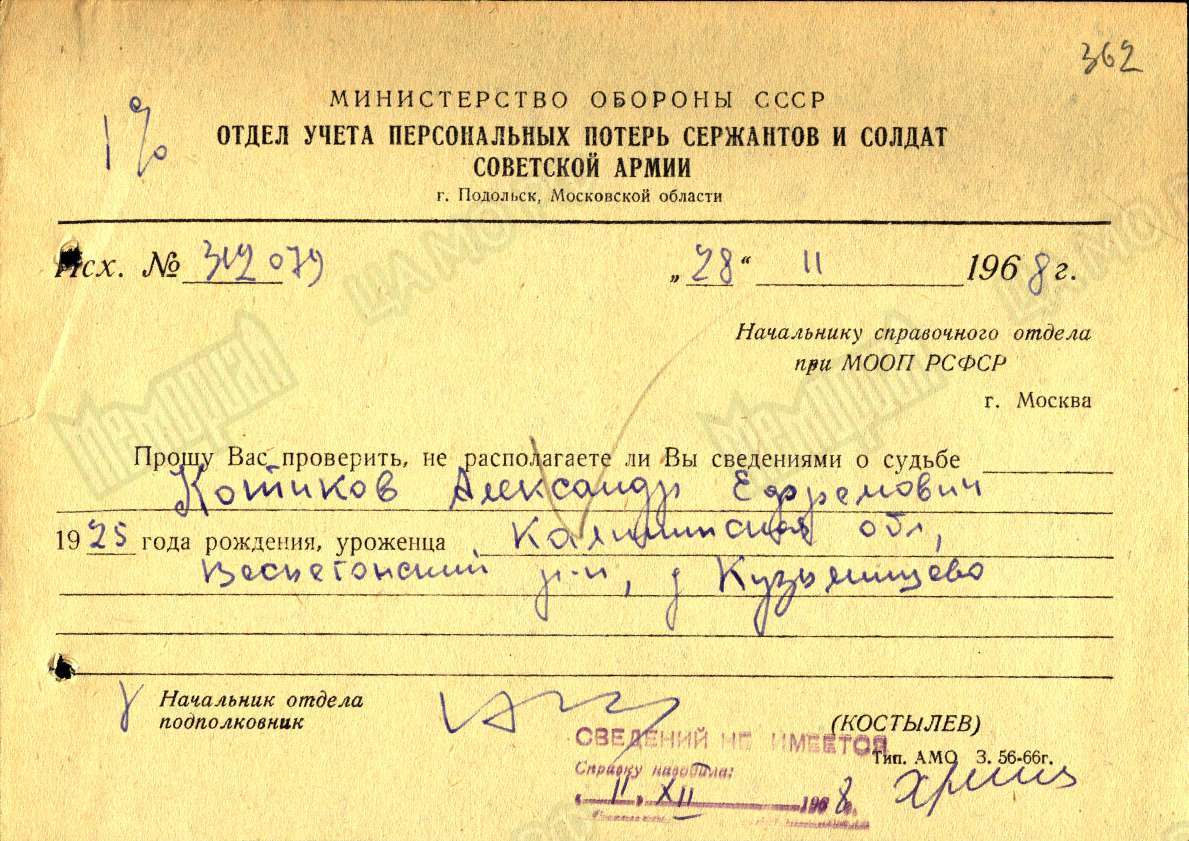 362
МИНИСТЕРСТВО ОБОРОНЫ СССР
ОТДЕЛ УЧЕТА ПЕРСОНАЛЬНЫХ ПОТЕРЬ СЕРЖАНТОВ И СОЛДАТ
СОВЕТСКОЙ АРМИИ
г. Подольск, Московской области
Исх. № 312079 „28" 11 1968 г.
Начальнику справочного отдела
при МООП РСФСР
г. Москва
Прошу Вас проверить, не располагаете ли Вы сведениями о судьбе
Котиков Александр Ефремович
1925 года рождения, уроженца Калининская обл,
Весьегонский р-н, д Кузьмищево
Начальник отдела
подполковник
(КОСТЫЛЕВ)
СВЕДЕНИЙ НЕ ИМЕЕТСЯ
Тип. АМО З. 56-66г.
Справку наводила:
„11" XII 1968 г.
Мемориал
ЦАМО